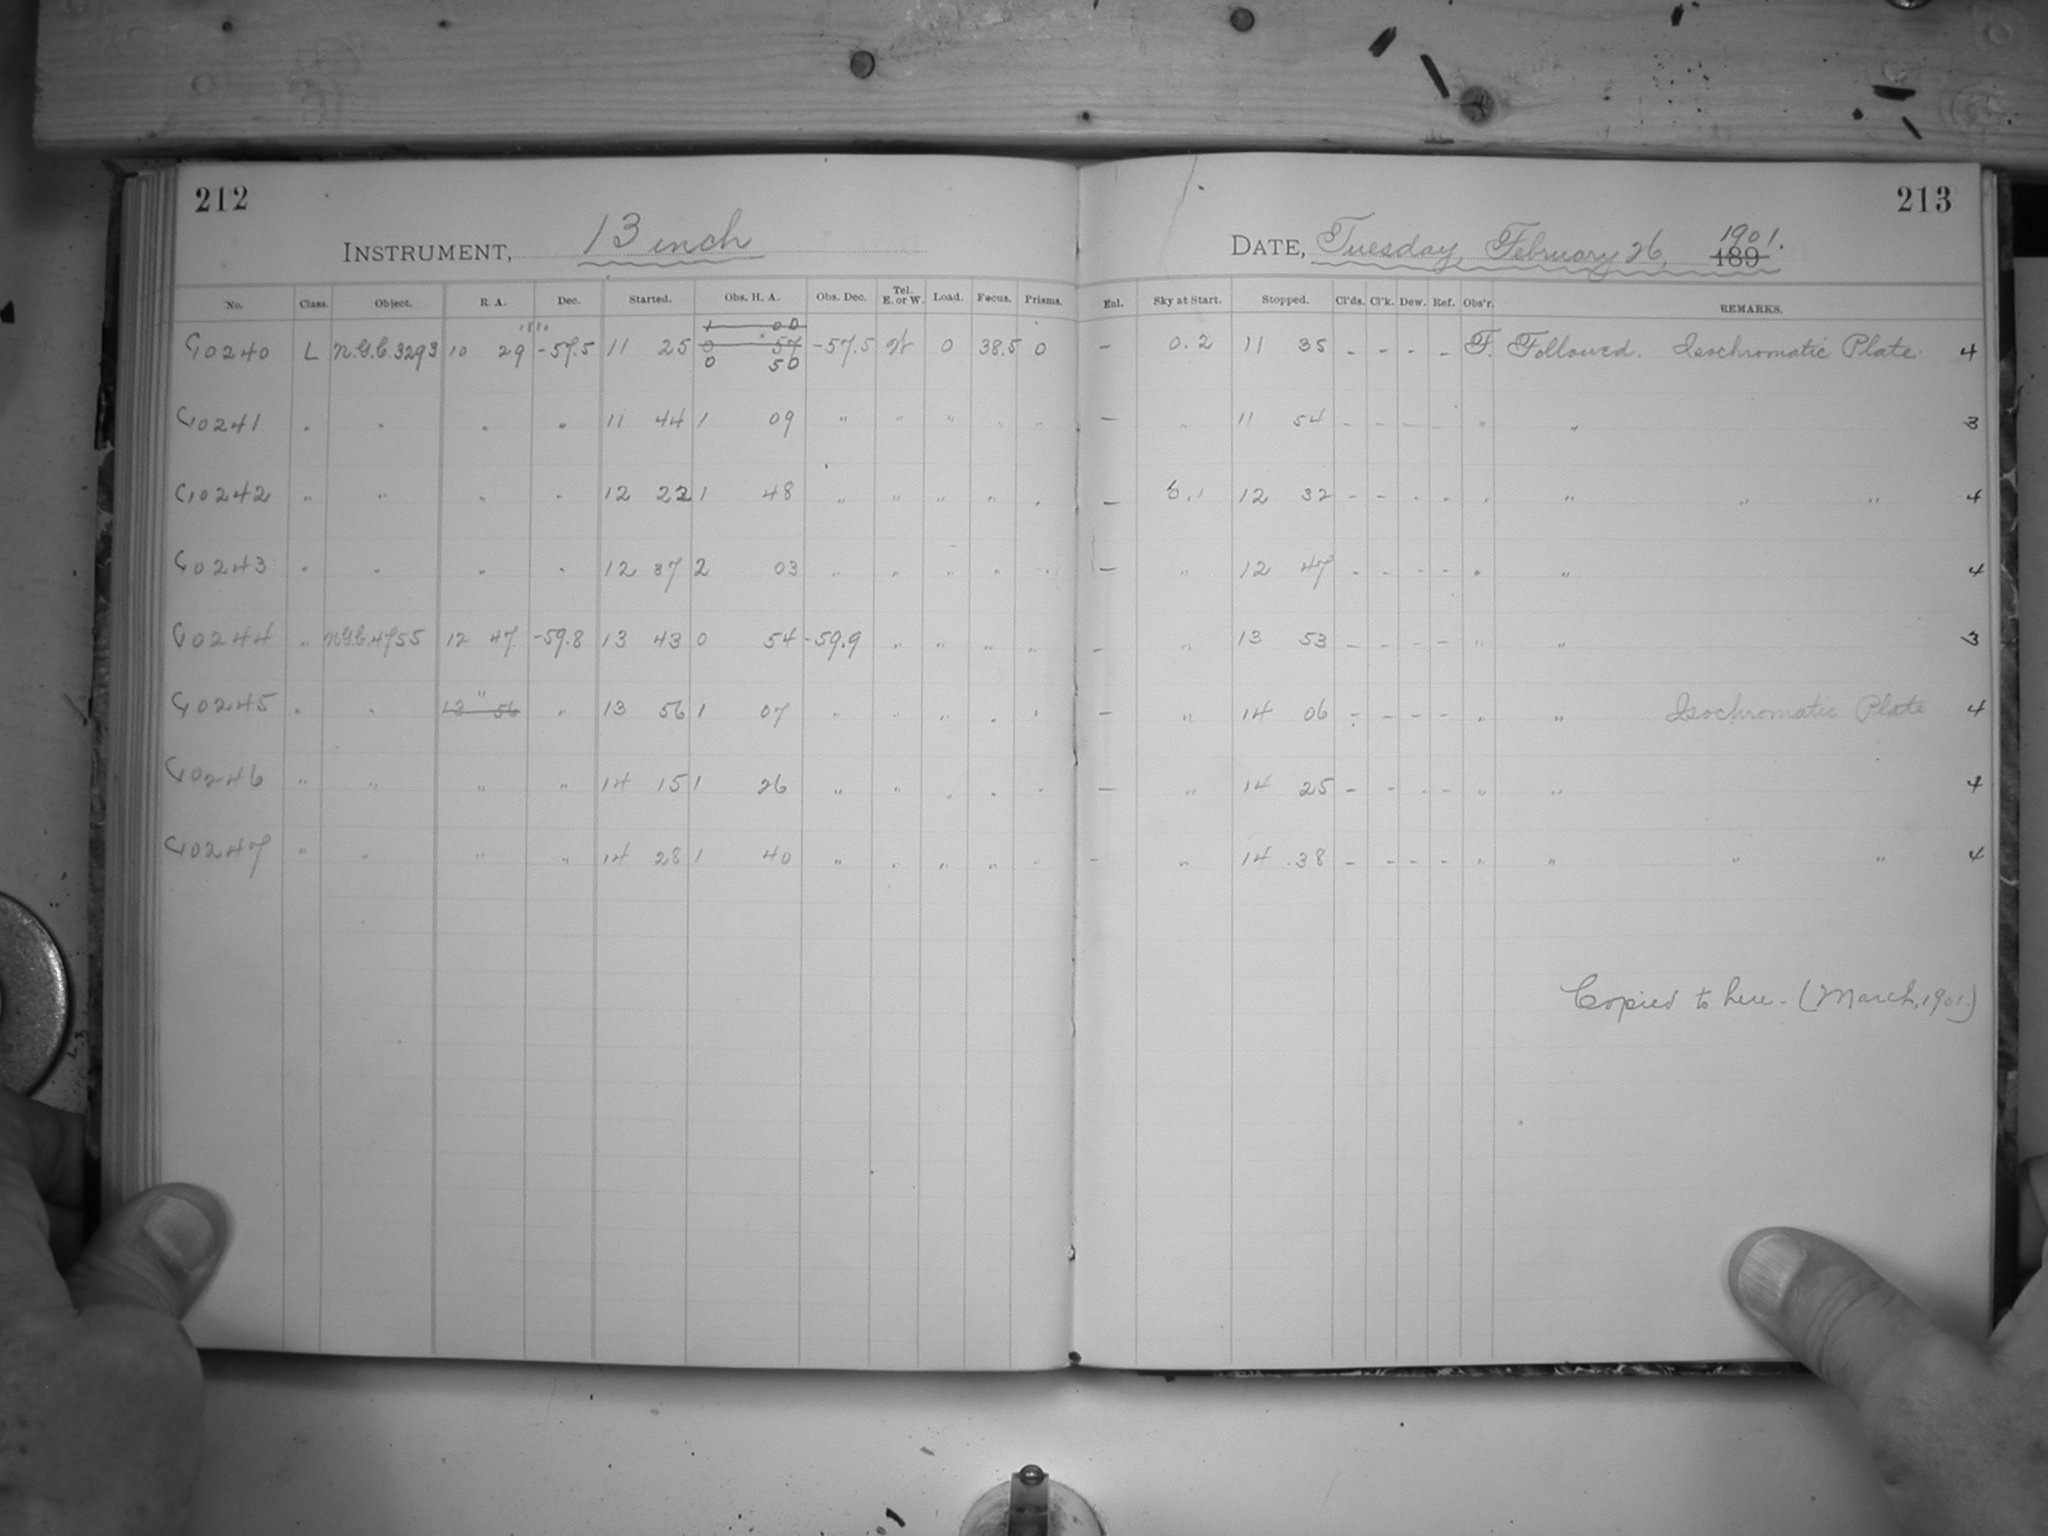 212
INSTRUMENT, 13 inch
No. Class. Object. R. A. Dec. Started. Obs. H. A. Obs. Dec. Tel. E. or W. Load. Focus. Prisms.
1880 1 00
10240 L N.G.C. 3293 10 29 -57.5 11 25 0 57 -57.5 W 0 38.5 0
0 50
10241 " " " " 11 44 1 09 " " " " "
10242 " " " " 12 22 1 48 " " " " "
10243 " " " " 12 37 2 03 " " " " "
10244 " N.G.C. 4755 12 47 -59.8 13 43 0 54 -59.9 " " " "
"
10245 " " 13 56 " 13 56 1 07 " " " " "
10246 " " " " 14 15 1 26 " " " " "
10247 " " " " 14 28 1 40 " " " " "
213
1901.
DATE, Tuesday, February 26, 189
Enl. Sky at Start. Stopped. Cl'ds. Cl'k. Dew. Ref. Obs'r. REMARKS.
- 0.2 11 35 - - - - F. Followed. Isochromatic Plate. 4
- " 11 54 - - - - " " 3
- 12 32 - - - - " " " " 4
- " 12 47 - - - - " " 4
- " 13 53 - - - - " " 3
- " 14 06 - - - - " " Isochromatic Plate 4
- " 14 25 - - - - " " 4
- " 14 38 - - - - " " " " 4
Copied to here - (March, 1901.)